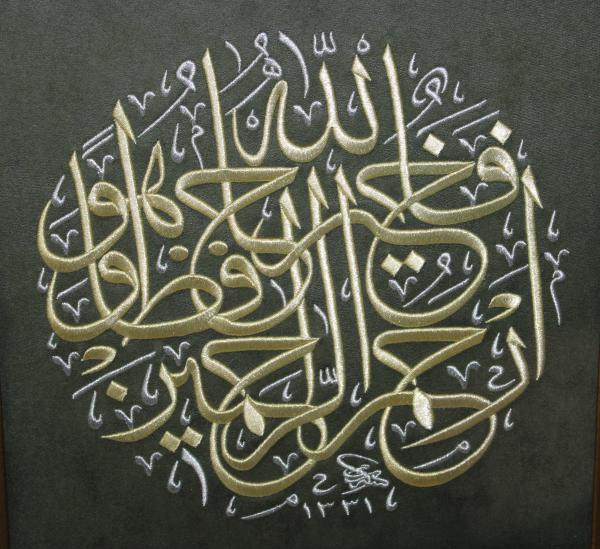 فالله خير حافظا وهو ارحم الراحمين
١٣٣١